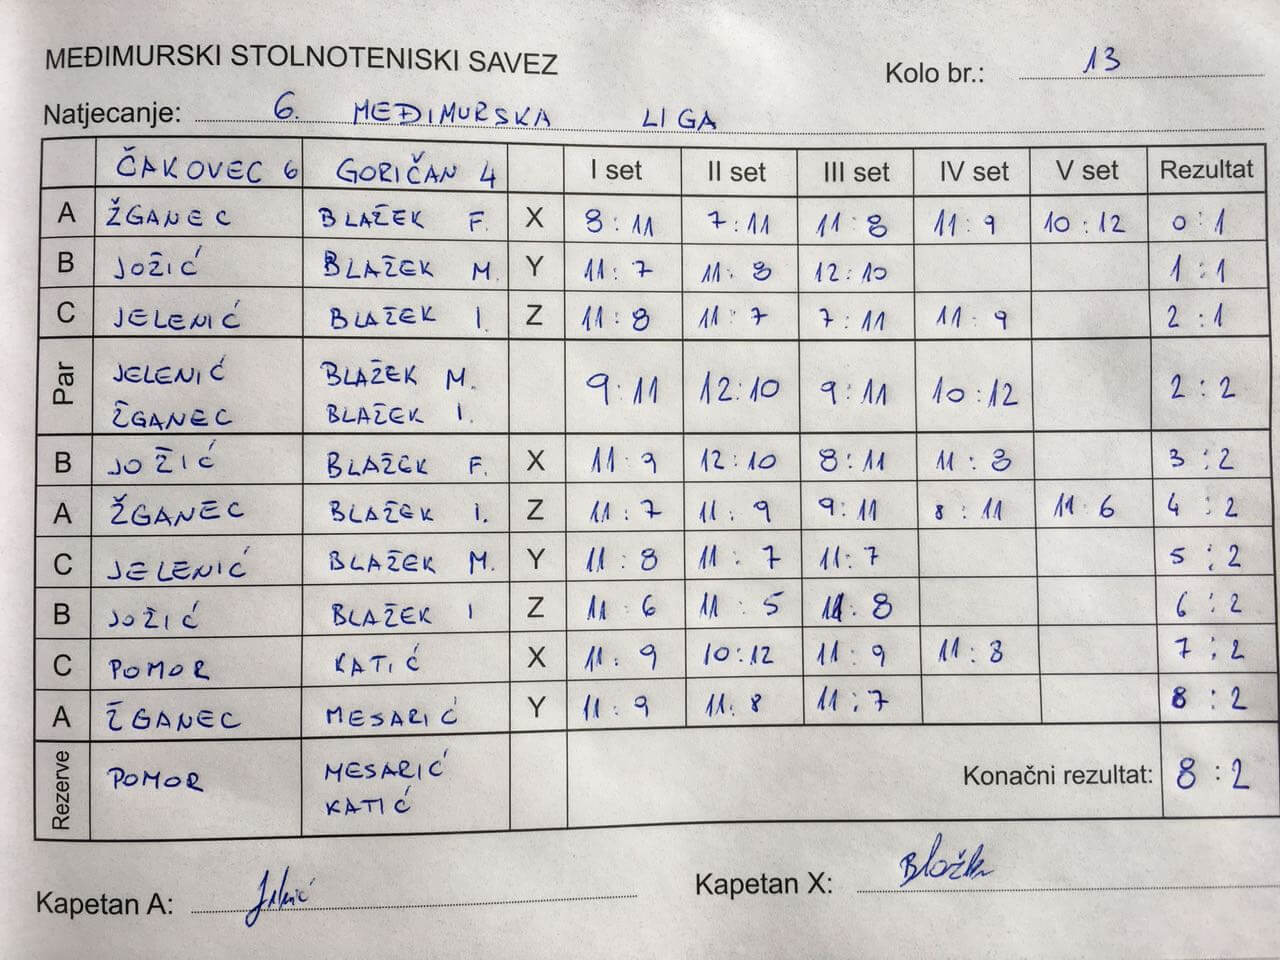 MEĐIMURSKI STOLNOTENISKI SAVEZ
Kolo br.: 13
Natjecanje: 6. MEĐIMURSKA LIGA
ČAKOVEC 6 GORIČAN 4 I set II set III set IV set V set Rezultat
A ŽGANEC BLAŽEK F. X 8:11 7:11 11:8 11:9 10:12 0:1
B JOŽIĆ BLAŽEK M. Y 11:7 11:8 12:10 1:1
C JELENIĆ BLAŽEK I. Z 11:8 11:7 7:11 11:9 2:1
Par JELENIĆ BLAŽEK M. 9:11 12:10 9:11 10:12 2:2
ŽGANEC BLAŽEK I.
B JOŽIĆ BLAŽEK F. X 11:9 12:10 8:11 11:8 3:2
A ŽGANEC BLAŽEK I. Z 11:7 11:9 9:11 8:11 11:6 4:2
C JELENIĆ BLAŽEK M. Y 11:8 11:7 11:7 5:2
B JOŽIĆ BLAŽEK I Z 11:6 11:5 11:8 6:2
C POMOR KATIĆ X 11:9 10:12 11:9 11:8 7:2
A ŽGANEC MESARIĆ Y 11:9 11:8 11:7 8:2
Rezerve POMOR MESARIĆ Konačni rezultat: 8:2
KATIĆ
Kapetan A: Jelenić
Kapetan X: Blažek